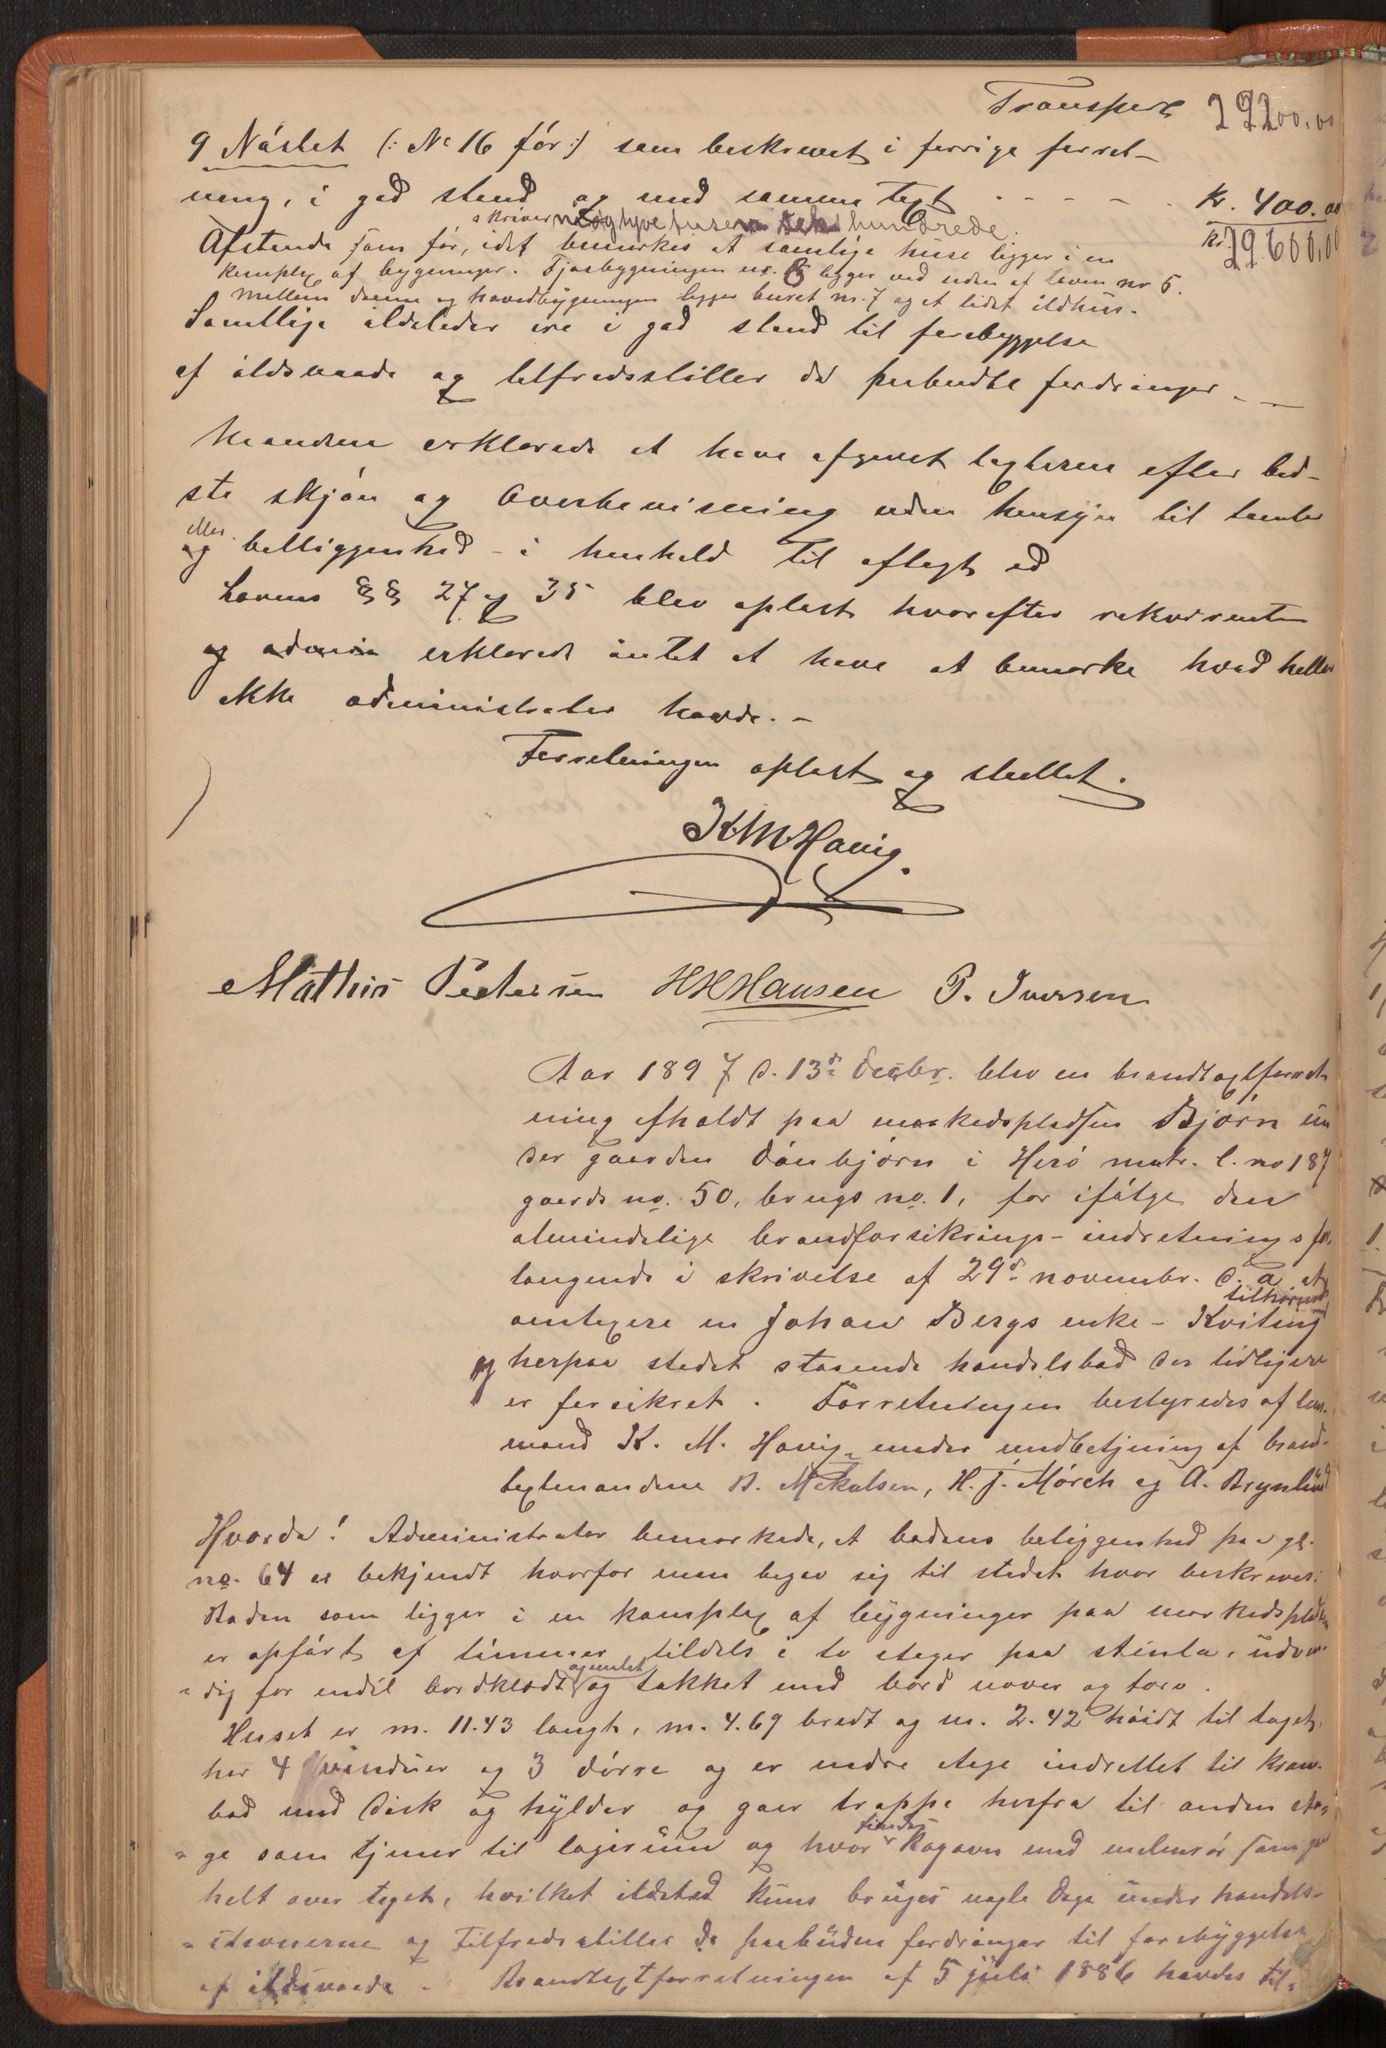 Transport 29200.00
9 Nästet (: No 16 før :) som beskrevet i forrige forret-
ning, i god stand og med samme taxt - - - - . Kr. 400.00
skriver niogtyvetusen seks hundrede. Kr. 29600,00
Afstande som før, idet bemærkes at samtlige huse ligger i en
komplex af bygninger. Fjøsbygningen no. 8 ligger ved enden af laven no 5.
Mellem denne og hovedbygningen ligger buret no. 7 og et lidet ildhus.
Samtlige ildsteder ere i god stand til forebyggelse
af ildsvaade og tilfredsstiller de paabudte fordringer - -
Mændene erklærede at have afgivet taxterne efter bed-
ste skjøn og overbevisning uden hensyn til tomter
eller
og belliggenhed - i henhold til aflagt ed
Lovens §§ 27 og 35 blev oplæst hvorefter rekvirenten
og admin erklærede intet at have at bemærke hvad heller
ikke administrator havde. -
Forretningen oplæst og sluttet.
K M Havig.
Mathis Pedersen HH Hansen P. Iversen
Aar 1897 d. 13de decbr. blev en brandtaxtforret
ning afholdt paa markedspladsen Bjørn un
der gaarden Dønbjørn i Herø matr. l. no 187
gaards no. 50, brugs no. 1, for ifølge den
almindelige brandforsikrings-indretnings for
langende i skrivelse af 29de novembr. d. a. at
omtaxere en Johan Bergs enke - Kviting tilhørende
og herpaa stedet staaende handelsbod der tidligere
er forsikret. Forretningen bestyredes af lens-
mand K. M. Havig under medbetjening af brand-
taxtmændene B. Mikalsen, H. J. Mörch og A. Brynlund
Hvorda! Administrator bemærkede, at bodens beliggenhed paa pl.
no. 64 er bekjendt hvorfor man begav sig til stedet hvor beskreves:
Boden som ligger i en komplex af bygninger paa markedspladsen
er opført af tømmer tildels i to etager paa stenta, udven-
dig for endel bordklædt og malet og takket med bord næver og torv.
Huset er m. 11.43 langt, m. 4.69 bredt og m. 2.42 høidt til taget,
har 4 vinduer og 3 dørre og er nedre etage indrettet til kram-
bod med disk og hylder og gaar trappe herfra til anden eta-
ge som tjener til lagerrum og hvor findes kogovn med melenrør som gaar
helt over taget, hvilket ildsted kuns bruges nogle dage under handels-
stevnerne og tilfredsstiller de paabudne fordringer til forebyggelse
af ildsvaade - Brandtaxtforretningen af 5 juli 1886 havdes til-